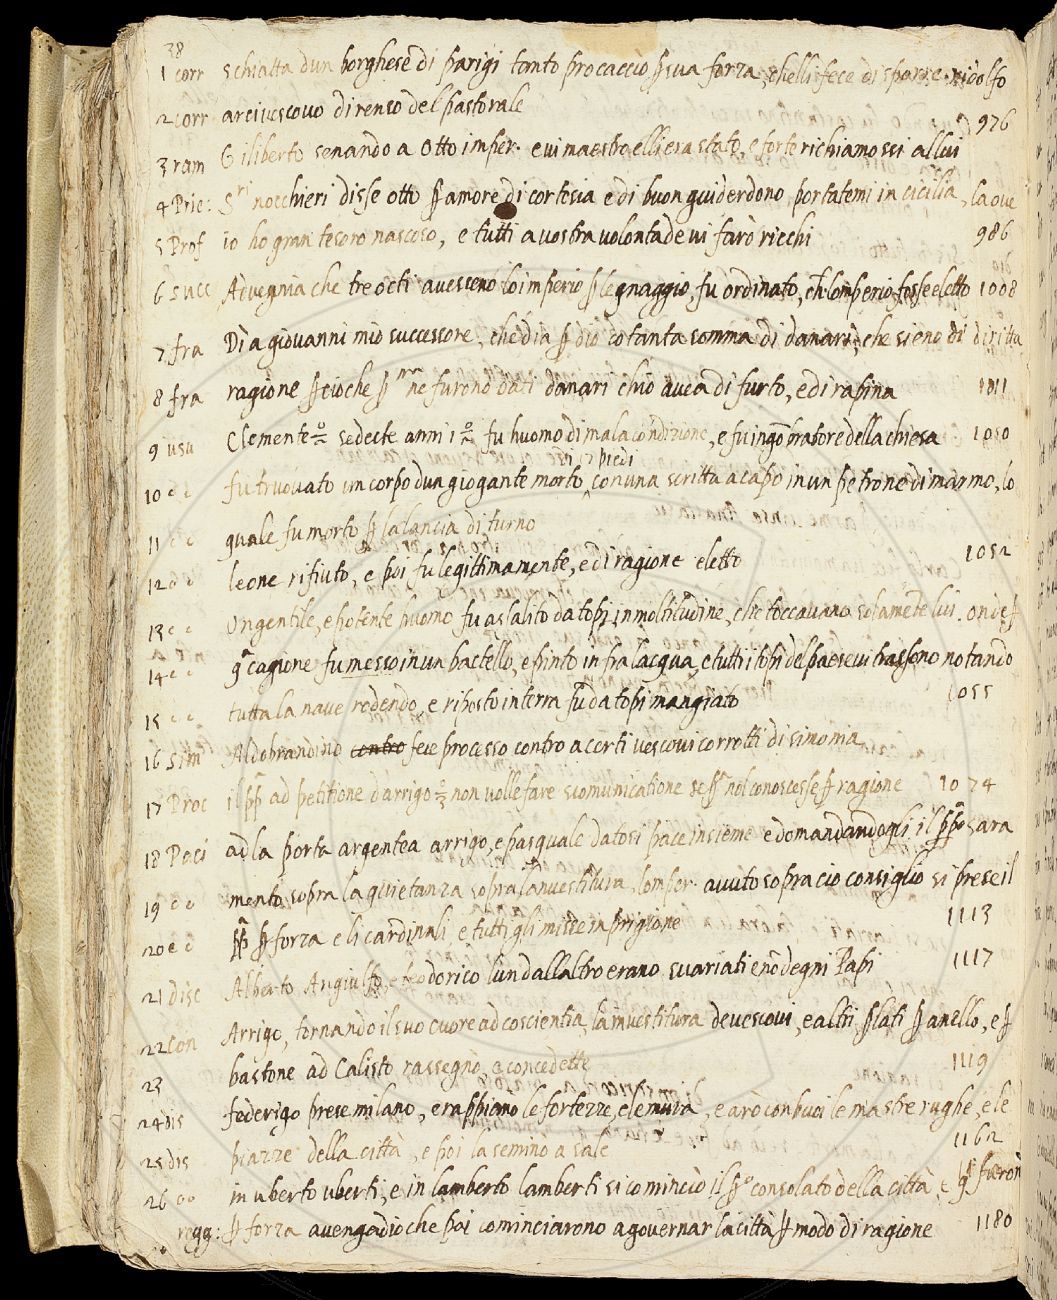 38
1 corr schiatta dun borghese di parigi tanto procaccio p sua forza, chelli fece disporre ridolfo
2 corr arcivescovo direnso del pastorale 976
3 ram Giliberto senando a Otto imper. e vi maestro elli era stato, e forte richiamossi allui
4 Prie: Sri nocchieri disse otto p amore di cortesia e di buon guiderdono portatemi in cicilia, la ove
5 Prof io ho gran tesoro nascoso, e tutti a vostra volontade vi farò ricchi 986
6 succ Advegnia che tre octi avesseno lo imperio p legnaggio, fu ordinato, ch lonperio fosse eletto 1008
7 fra Dì a giovanni mio successore, che dia p dio cotanta somma di danari, che sieno di diritta
8 fra ragione p cioche p me ne furono dati danari chio avea di furto, e di rapina 1011
9 usu Clemente sedecte anni 1 fu huomo di mala condizione, e fu ingopratore della chiesa 1050
di 17 piedi
10 e e fu truovato un corpo dun giogante morto con una scritta a capo in un petrone di marmo, lo
11 e e quale fu morto p la lancia di turno
12 e e leone rifiuto, e poi fu legittimamente, e di ragione eletto 1052
13 e e Un gentile, e potente huomo fu assalito da topi in moltitudine, che toccavano solamete lui. onde p
14 e e q cagione fu messo in un bactello, e pinto in fra lacqua, e tutti i topi del paese vi trassono notando
15 e e tutta la nave rodendo, e riposto in terra fu da topi mangiato 1055
16 sim Aldobrandino contro fece processo contro a certi vescovi corrotti di simonia
17 Proc il pp ad petitione darrigo 3 non volle fare scomunicatione se p nol conoscesse p ragione 1074
18 Paci ad la porta argentea arrigo, e pasquale datosi pace insieme e domandandogli il pp sara
19 e e mento sopra la quietanza sopra la nvestitura, lomper. avuto sopra cio consiglio si prese il
20 e e pp p forza e li cardinali e tutti gli misse in prigione 1113
21 disc Alberto Angiulfo, e teodorico lun dallaltro erano svariati e no degni Papi 1117
22 con Arrigo, tornando il suo cuore ad coscientia, la investitura de vescovi, e altri plati p anello, e p
23 bastone ad Calisto rassegnò, e concedette 1119
24 dis federigo prese milano, e rappiano le fortezze, e le mura, e arò con buoi le mastre rughe, e le
25 dis piazze della città, e poi la semino a sale 1162
26 oo in uberto uberti, e in lamberto lamberti si cominciò il p° consolato della città e q furon
regg: p forza avengadio che poi cominciarono a governar la città p modo di ragione 1180